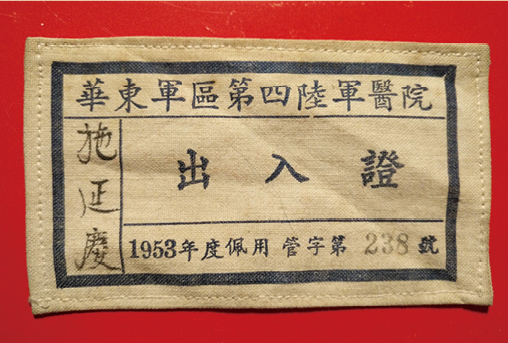 華東軍區第四陸軍醫院
施延慶
出入證
1953年度佩用 管字第 238 號